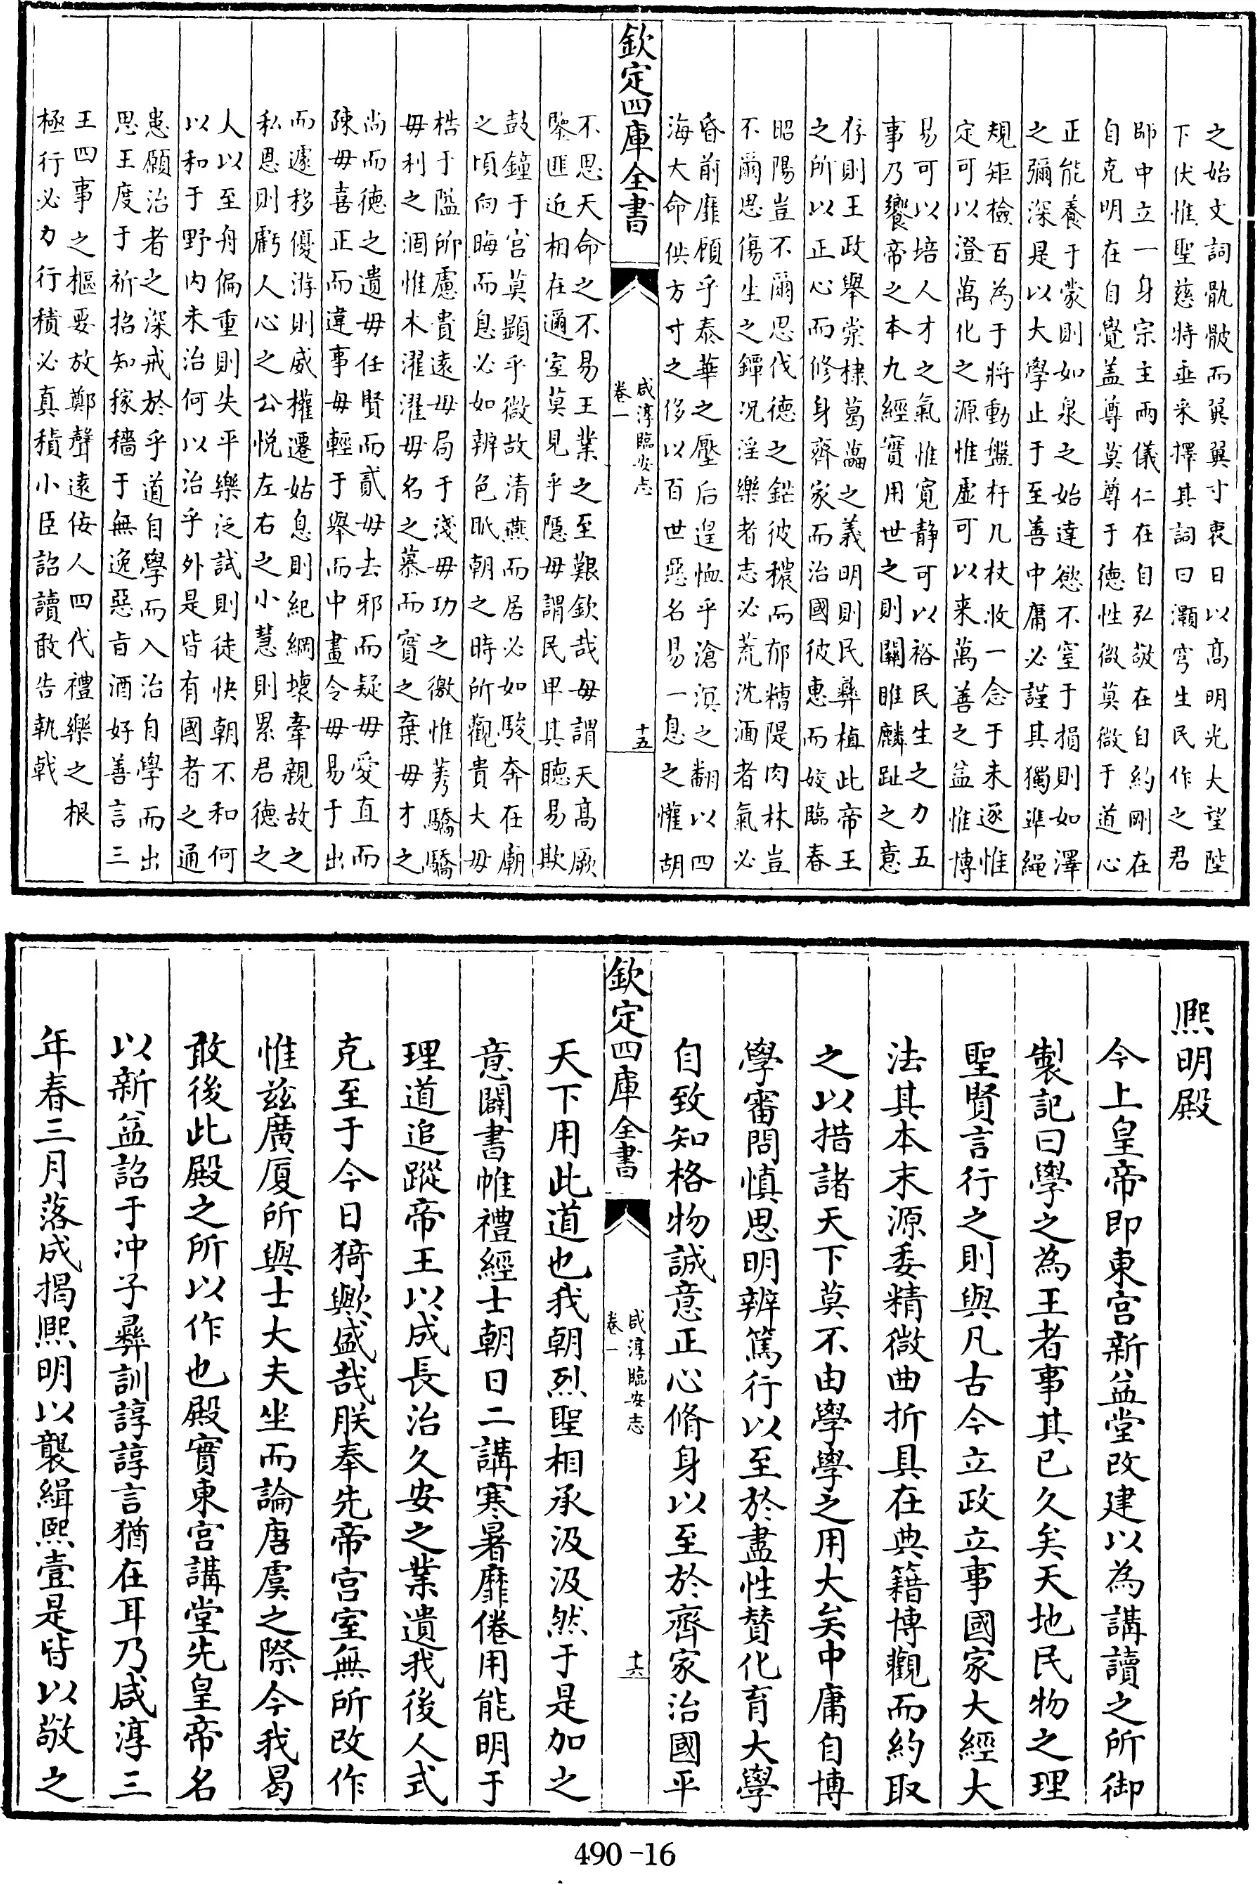 之始文詞骫骳而翼翼寸衷日以高明光大望陛
下伏惟聖慈特垂采擇其詞曰灝穹生民作之君
師中立一身宗主兩儀仁在自弘敬在自約剛在
自克明在自覺盖尊莫尊于德性微莫微于道心
正能養于蒙則如泉之始達慾不窒于損則如澤
之彌深是以大學止于至善中庸必謹其獨準繩
規矩檢百為于將動盤杅几杖收一念于未逐惟
定可以澄萬化之源惟虛可以来萬善之益惟博
易可以培人才之氣惟寛静可以裕民生之力五
事乃饗帝之本九經實用世之則關雎麟趾之意
存則王政舉棠棣葛藟之義明則民彞植此帝王
之所以正心而修身齊家而治國彼惠而姣臨春
昭陽豈不爾思伐德之鉛彼穠而郁糟隄肉林豈
不爾思傷生之鐔况淫樂者志必荒沈湎者氣必
昏前靡顧乎泰華之壓后遑恤乎滄溟之翻以四
海大命供方寸之侈以百世惡名易一息之懽胡
欽定四庫全書
咸淳臨安志
卷一
十五
不思天命之不易王業之至艱欽哉毋謂天高厥
鑒匪近相在邇室莫見乎隱毋謂民卑其聽易欺
鼓鐘于宫莫顯乎微故清燕而居必如駿奔在廟
之頃向晦而息必如辨色眂朝之時所觀貴大毋
梏于隘所慮貴遠毋局于淺毋功之徼惟莠驕驕
毋利之涸惟木濯濯毋名之慕而實之棄毋才之
尚而德之遺毋任賢而貳毋去邪而疑毋愛直而
踈毋喜正而違事毋輕于舉而中畫令毋易于出
而遽移優游則威權遷姑息則紀綱壞牽親故之
私恩則虧人心之公悦左右之小慧則累君德之
人以至舟偏重則失平樂泛試則徒快朝不和何
以和于野内未治何以治乎外是皆有國者之通
患願治者之深戒於乎道自學而入治自學而出
思王度于祈招知稼穡于無逸惡旨酒好善言三
王四事之樞要放鄭聲遠佞人四代禮樂之根
極行必力行積必真積小臣詔讀敢告執戟
熈明殿
今上皇帝即東宮新益堂改建以為講讀之所御
製記曰學之為王者事其已久矣天地民物之理
聖賢言行之則與凡古今立政立事國家大經大
法其本末源委精微曲折具在典籍博觀而約取
之以措諸天下莫不由學學之用大矣中庸自博
學審問慎思明辨篤行以至於盡性賛化育大學
自致知格物誠意正心脩身以至於齊家治國平
欽定四庫全書
咸淳臨安志
卷一
十六
天下用此道也我朝烈聖相承汲汲然于是加之
意闢書帷禮經士朝日二講寒暑靡倦用能明于
理道追蹤帝王以成長治久安之業遺我後人式
克至于今日猗歟盛哉朕奉先帝宮室無所改作
惟兹廣厦所與士大夫坐而論唐虞之際今我曷
敢後此殿之所以作也殿實東宮講堂先皇帝名
以新益詔于冲子彞訓諄諄言猶在耳乃咸淳三
年春三月落成揭熈明以襲緝熙壹是皆以敬之
490-16